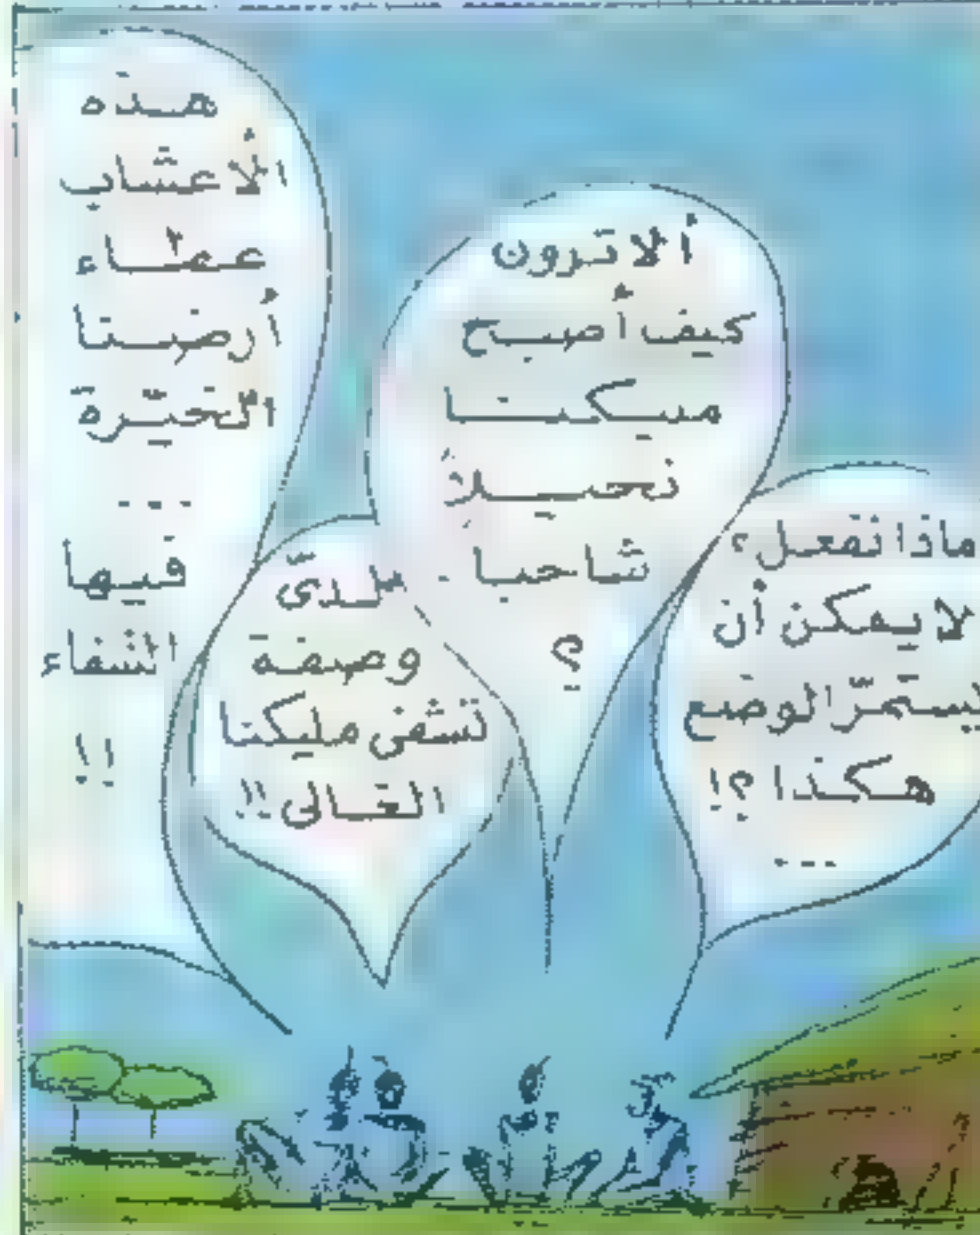 ماذا نفعل؟
لا يمكن أن
يستمرّ الوضع
هكذا ؟!
...
ألا ترون
كيف أصبح
مليكنا
نحيلاً
شاحبا
؟
لدىّ
وصفة
تشفى مليكنا
الغالى !!
هذه
الأعشاب
عطاء
أرضنا
الخيّرة
...
فيها
الشفاء
!!